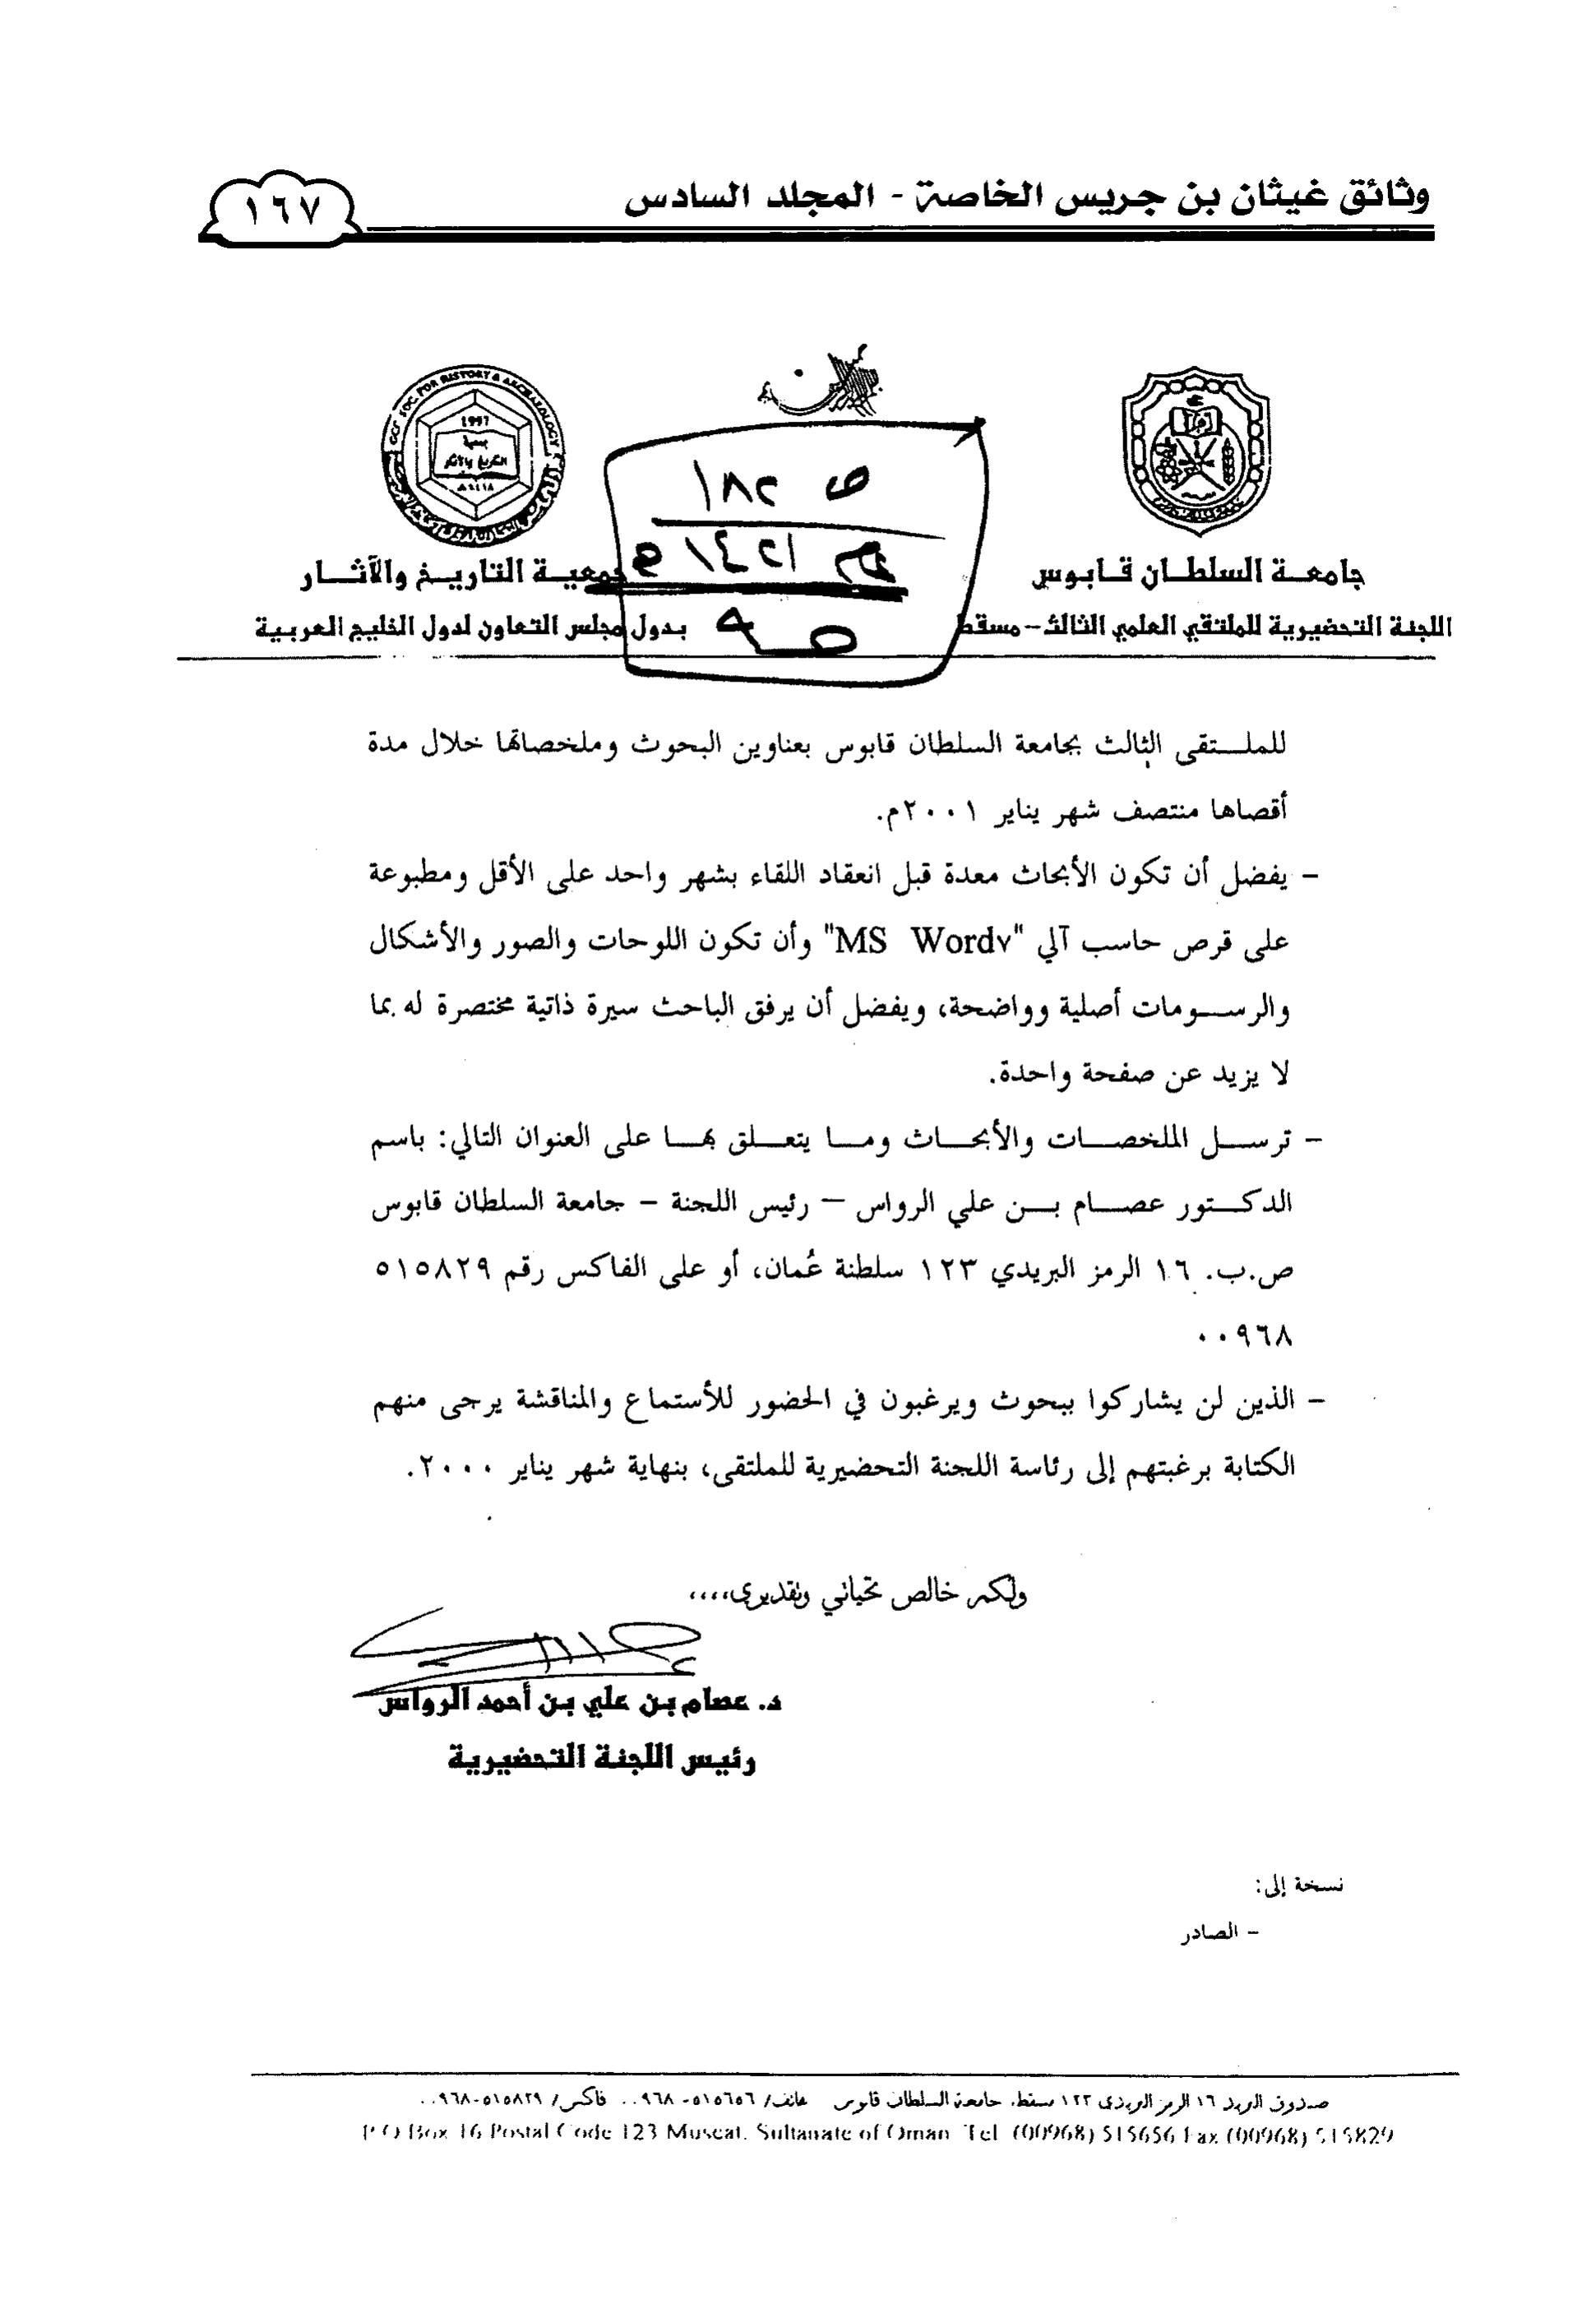 وثائق غيثان بن جريس الخاصة - المجلد السادس
١٦٧
GCC SOC. FOR HISTORY & ARCHAEOLOGY
1997
جمعية
التاريخ والآثار
١٤١٨هـ
ص ١٨٢
جامعة السلطان قابوس
جمعية التاريخ والآثار
اللجنة التحضيرية للملتقي العلمي الثالث - مسقط
بدول مجلس التعاون لدول الخليج العربية
للملتقى الثالث بجامعة السلطان قابوس بعناوين البحوث وملخصاتها خلال مدة
أقصاها منتصف شهر يناير ٢٠٠١م.
- يفضل أن تكون الأبحاث معدة قبل انعقاد اللقاء بشهر واحد على الأقل ومطبوعة
على قرص حاسب آلي "MS Word٧" وأن تكون اللوحات والصور والأشكال
والرسومات أصلية وواضحة، ويفضل أن يرفق الباحث سيرة ذاتية مختصرة له بما
لا يزيد عن صفحة واحدة.
- ترسل الملخصات والأبحاث وما يتعلق بها على العنوان التالي: باسم
الدكتور عصام بن علي الرواس – رئيس اللجنة – جامعة السلطان قابوس
ص.ب. ١٦ الرمز البريدي ١٢٣ سلطنة عُمان، أو على الفاكس رقم ٥١٥٨٢٩
٠٠٩٦٨
- الذين لن يشاركوا ببحوث ويرغبون في الحضور للأستماع والمناقشة يرجى منهم
الكتابة برغبتهم إلى رئاسة اللجنة التحضيرية للملتقى، بنهاية شهر يناير ٢٠٠٠.
ولكم خالص تحياتي وتقديري،،،،
د. عصام بن علي بن أحمد الرواس
رئيس اللجنة التحضيرية
نسخة إلى:
- الصادر
صندوق البريد ١٦ الرمز البريدي ١٢٣ مسقط، جامعة السلطان قابوس هاتف/ ٥١٥٦٥٦-٠٠٩٦٨ فاكس/ ٥١٥٨٢٩-٠٠٩٦٨
P.O Box 16 Postal Code 123 Muscat. Sultanate of Oman Tel (00968) 515656 Fax (00968) 515829